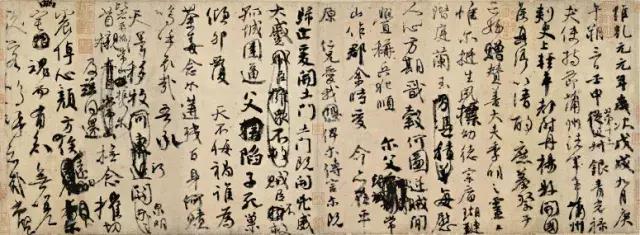 維乾元元年歲次戊戌九月庚
午朔三日壬申第十三叔銀青光祿
夫使持節蒲州諸軍事蒲州
刺史上輕車都尉丹楊縣開國
侯真卿以清酌庶羞祭于
亡姪贈贊善大夫季明之靈曰
惟爾挺生夙標幼德宗廟瑚璉
階庭蘭玉每慰
人心方期戩穀何圖逆賊閒
釁稱兵犯順爾父竭誠常
山作郡余時受命亦在平
原仁兄愛我俾爾傳言爾既
歸止爰開土門土門既開凶威
大蹙賊臣不救
孤城圍逼父陷子死巢
傾卵覆天不悔禍誰為
荼毒念爾遘殘百身何贖
嗚乎哀哉吾承
天澤移牧河關泉明
比者再陷常山攜爾
首櫬及茲同還撫念摧切
震悼心顏方俟
幽宅魂而有知無嗟
久客嗚呼哀哉尚饗